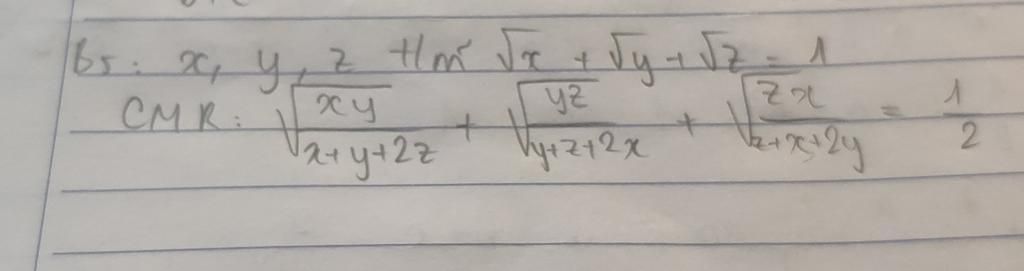 B5: x, y, z t/m √x + √y + √z = 1
CMR: √(xy/(x+y+2z)) + √(yz/(y+z+2x)) + √(zx/(z+x+2y)) = 1/2